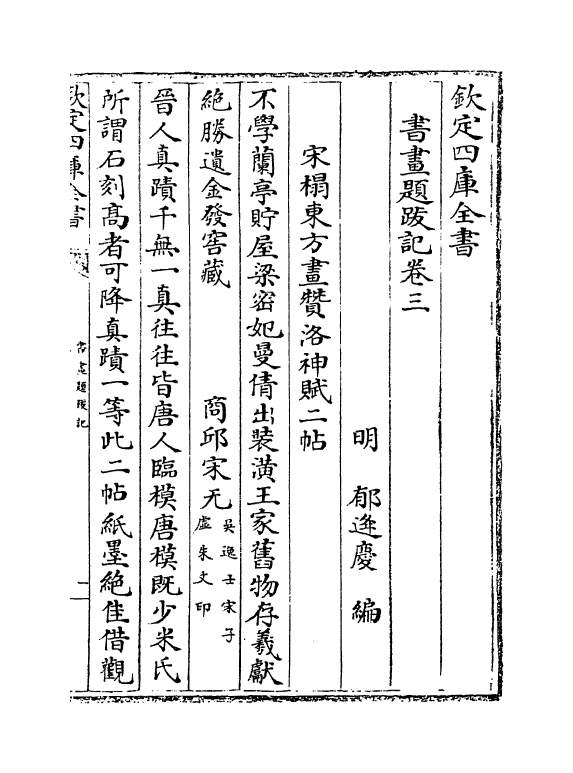 欽定四庫全書
書畫題跋記卷三
明　郁逢慶　編
宋榻東方畫贊洛神賦二帖
不學蘭亭貯屋梁密如曼倩出裝潢王家舊物存羲獻
絶勝遺金發窖藏　商邱宋无吳逸士宋子
虛朱文印
晉人真蹟千無一真往往皆唐人臨模唐模既少米氏
所謂石刻髙者可降真蹟一等此二帖紙墨絶佳借觀
欽定四庫全書
書畫題跋記
一